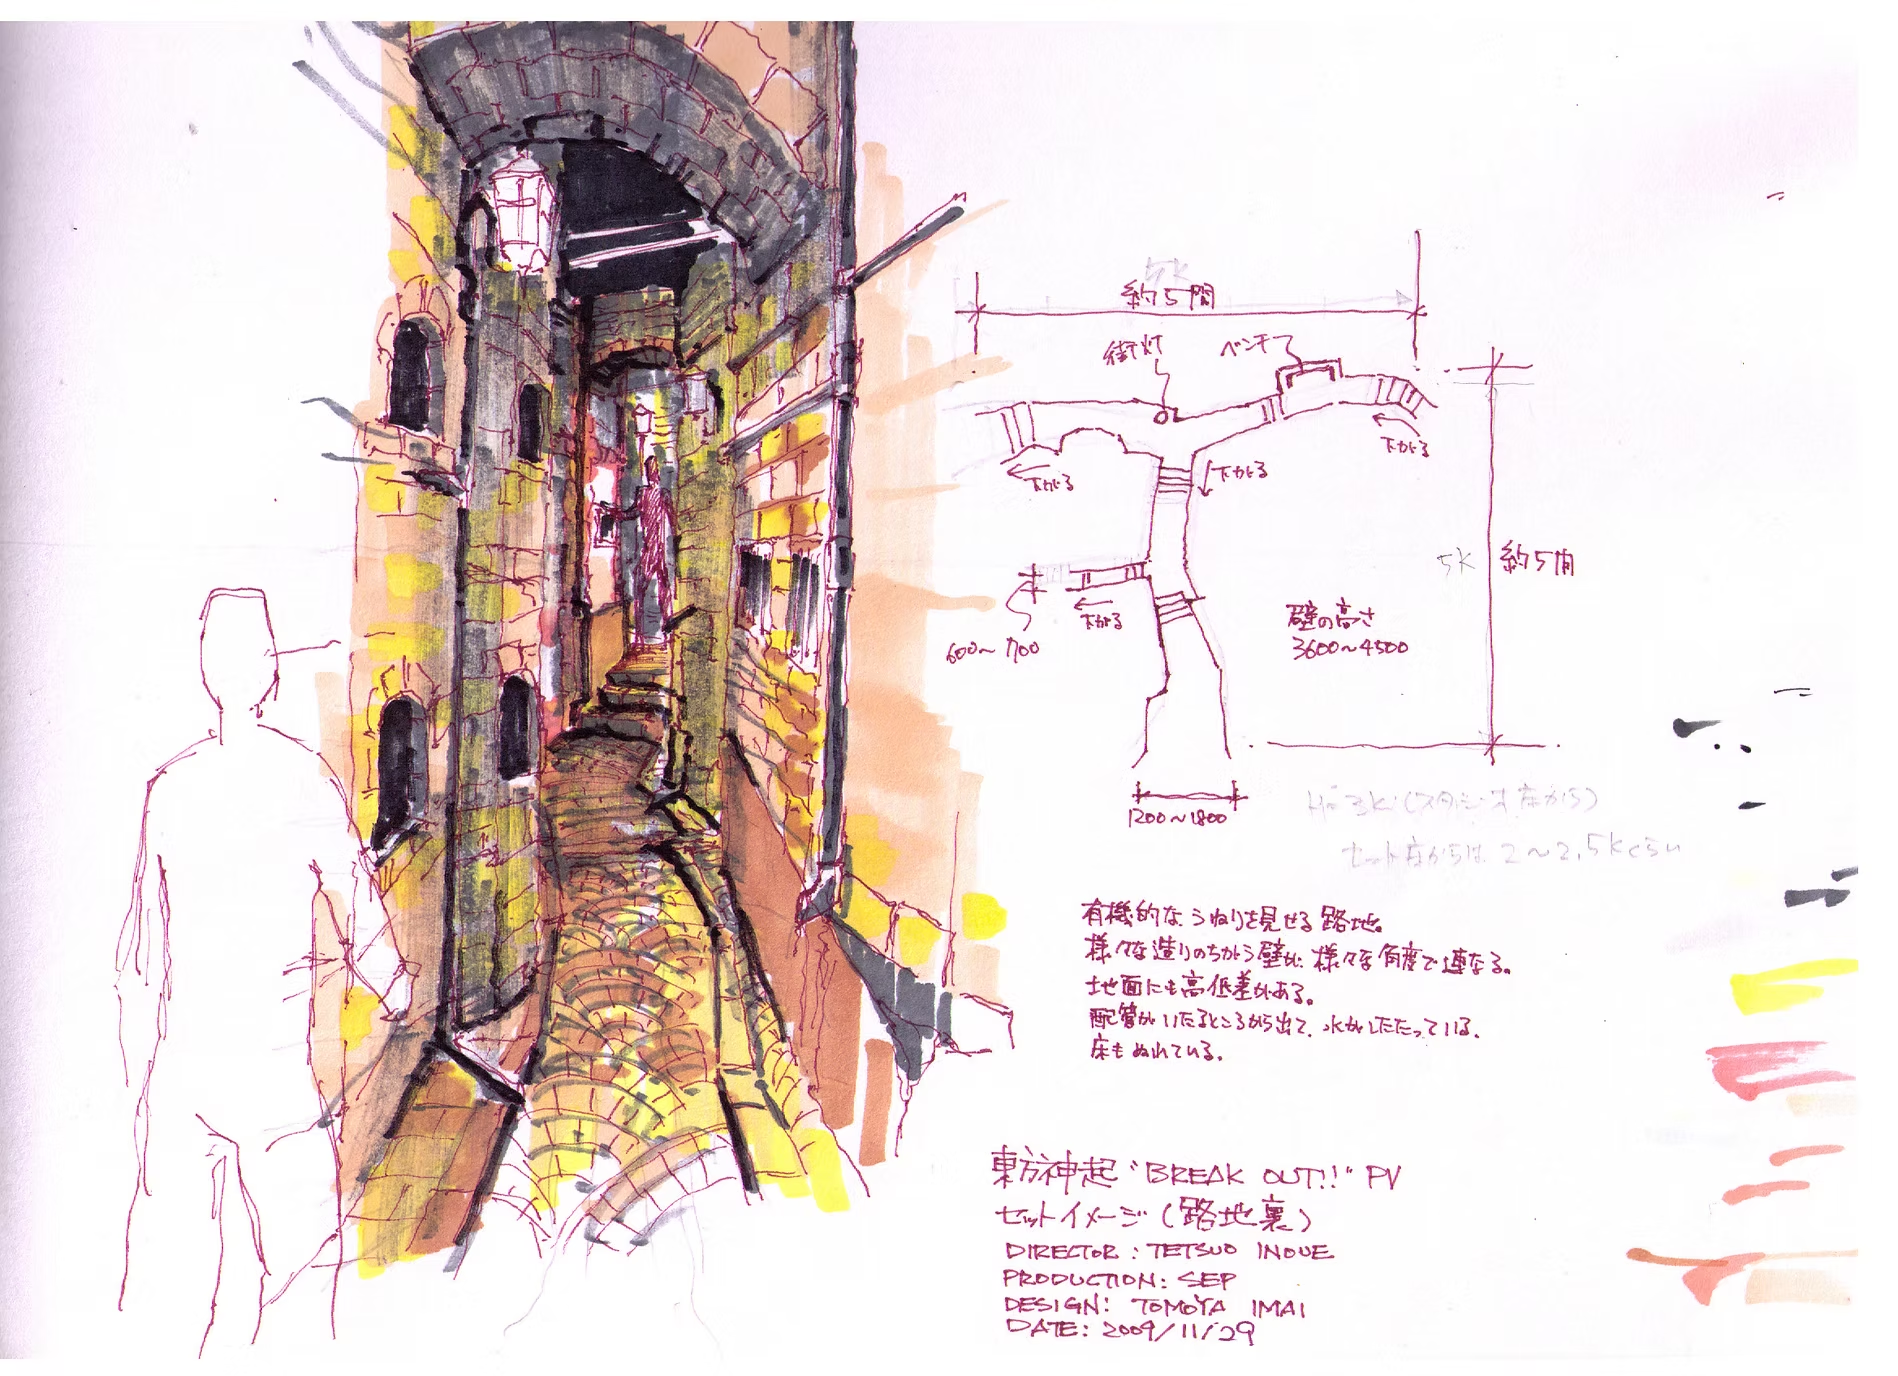 5K
約5間
街灯
ベンチ
下がる
下がる
下がる
5K
約5間
下がる
600〜700
壁の高さ
3600〜4500
1200〜1800
H=3K(スタジオ床から)
セット床からは 2〜2.5Kくらい
有機的な うねりを見せる 路地。
様々な造りのちがう壁が、様々な角度で連なる。
地面にも高低差がある。
配管がいたるところから出て、水がしたたっている。
床もぬれている。
東方神起 "BREAK OUT!!" PV
セットイメージ (路地裏)
DIRECTOR : TETSUO INOUE
PRODUCTION: SEP
DESIGN: TOMOYA IMAI
DATE: 2009/11/29